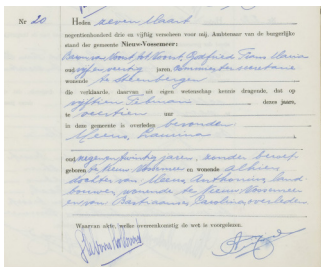 Nr 20
Heden zeven Maart
negentienhonderd drie en vijftig verscheen voor mij, Ambtenaar van de burgerlijke
stand der gemeente Nieuw-Vossemeer:
Godfried Frans Maria
oud vijf en veertig jaren,
wonende te Steenbergen
die verklaarde, daarvan uit eigen wetenschap kennis dragende, dat op
vijftien Februari dezes jaars,
te veertien uur
in deze gemeente is overleden bevonden
oud negen en twintig jaren, zonder beroep
geboren te Nieuw Vossemeer en wonende alhier
dochter van Anthonius land
bouwer, wonende te Nieuw Vossemeer
en van Bastiaansen, Carolina overleden
Waarvan akte, welke overeenkomstig de wet is voorgelezen.